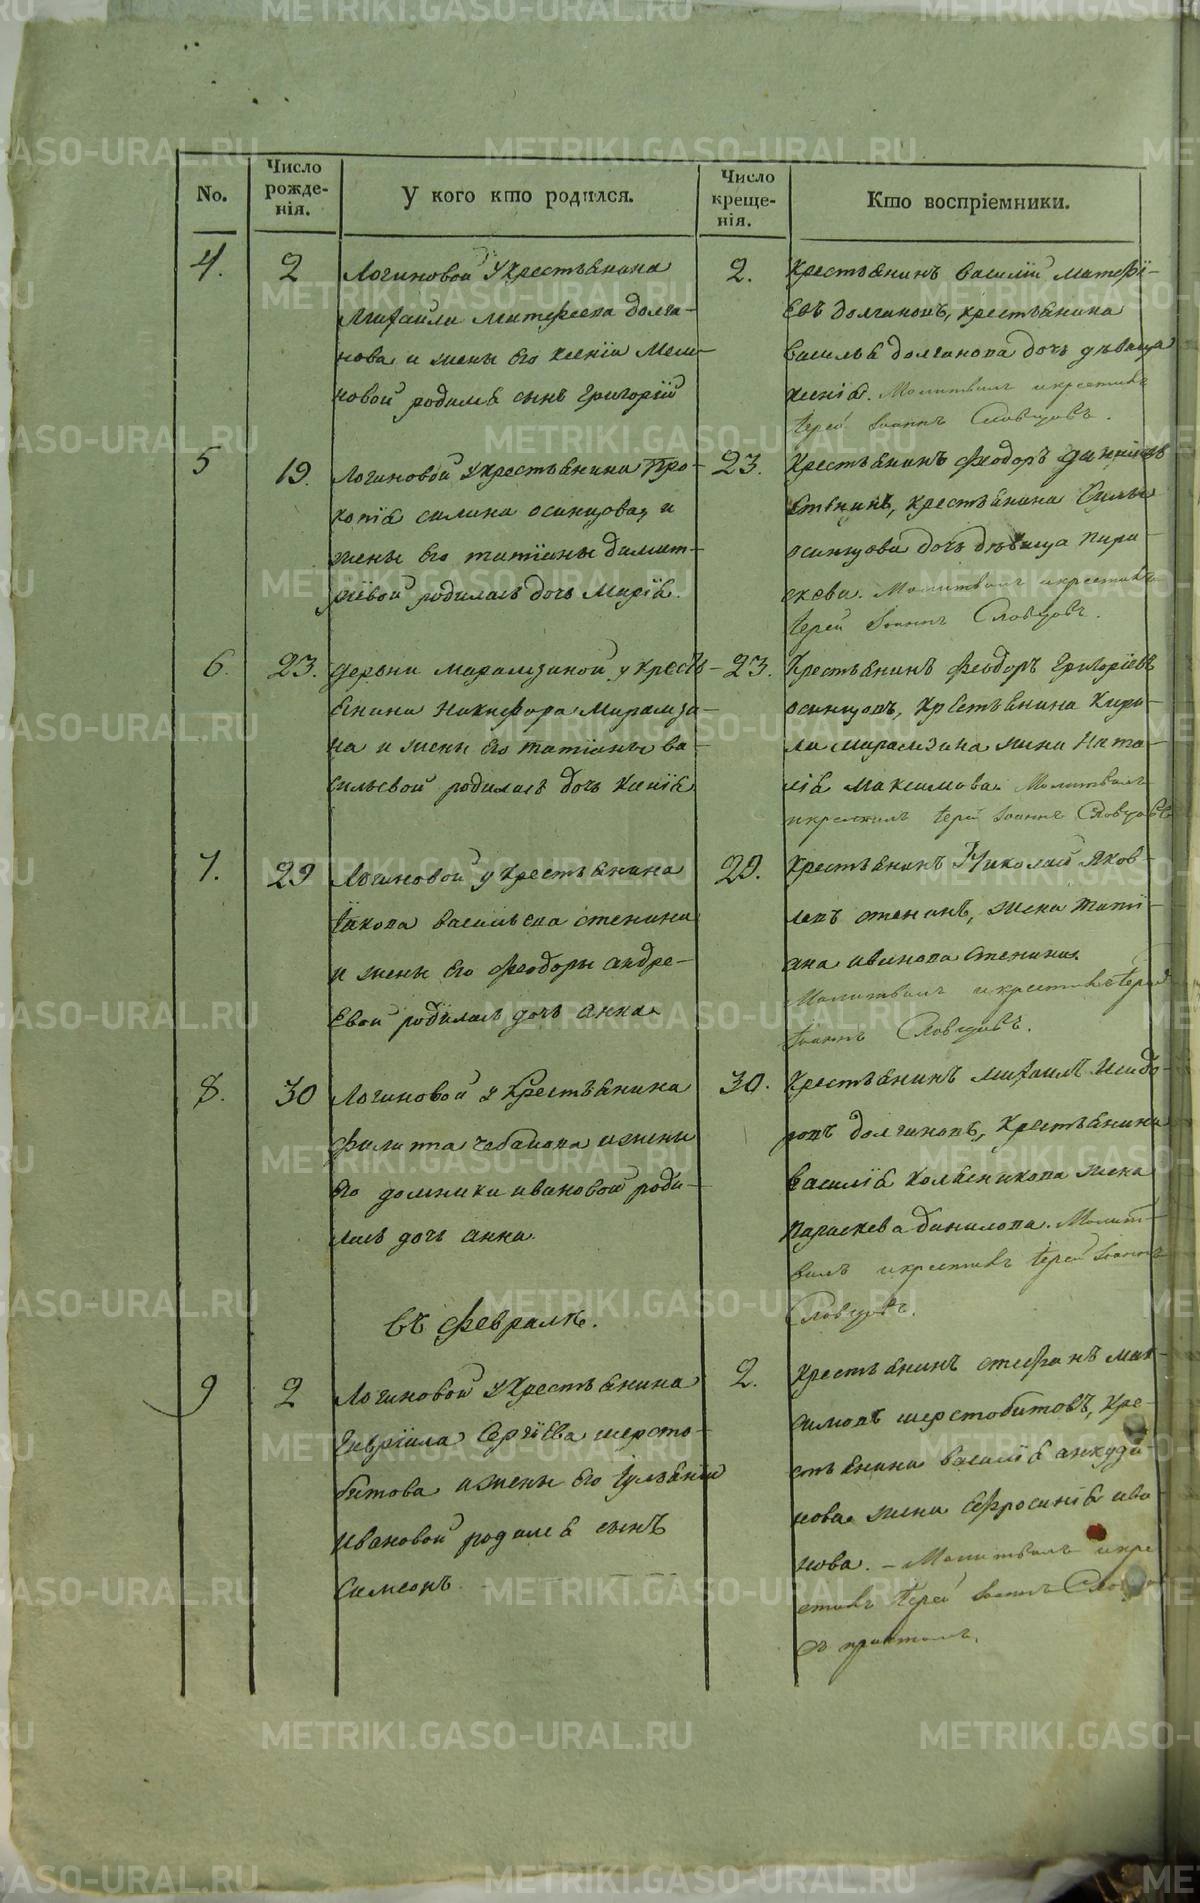 No.
Число рожде-нія.
У кого кто родился.
Число креще-нія.
Кто воспріемники.
4.
2
Логиновой у крестьянина
Михаила Матфеева Долга-
нова и жены его Ксеніи
новой родился сынъ Григорій
2.
Крестьянинъ Василій Матфі-
евъ Долгановъ, крестьянина
Василья Долганова дочь дѣвица
Ксенія. Молитвилъ и крестилъ
Іерей Іоаннъ Словцовъ.
5
19.
Логиновой у крестьянина Про-
копія Силина Осинцова, и
жены его татіаны димит-
ріевой родилась дочь Марія.
23.
Крестьянинъ Феодоръ
крестьянина Силы
осинцова дочь дѣвица пара-
скева. Молитвилъ и крестилъ
Іерей Іоаннъ Словцовъ.
6.
23.
дервни Марамзиной у кресть-
янина Никифора Марамзи-
на и жены его татіаны ва-
сильевой родилась дочь Ксенія
23.
Крестьянинъ Феодоръ Григоріевъ
осинцовъ, крестьянина Кири-
ла марамзина жена Ната-
лія Максимова. Молитвилъ
и крестилъ Іерей Іоаннъ Словцовъ
7.
29
Логиновой у крестьянина
Іякова васильева стенина
и жены его Феодоры андре-
евой родилась дочь анна
29.
Крестьянинъ Николай Яков-
левъ стенинъ, жена тати-
ана иванова стенина.
Молитвилъ и крестилъ Іерей
Іоаннъ Словцовъ.
8.
30
Логиновой у крестьянина
Филиппа и жены
его домники ивановой роди-
лась дочь анна.
30.
Крестьянинъ михаилъ Исидо-
ровъ долгановъ, крестьянина
василія колясникова жена
параскева данилова. Молит-
вилъ и крестилъ Іерей Іоаннъ
Словцовъ.
въ Февралѣ.
9
2
Логиновой у крестьянина
Гавріила Сергіева шерсто-
битова и жены его Іуліяніи
ивановой родился сынъ
Симеонъ.
2.
Крестьянинъ стефанъ мак-
симовъ шерстобитовъ, кре-
стьянина василія анкуди-
нова жена Ефросинія ива-
нова. - Молитвилъ и кре
стилъ Іерей Іоаннъ
съ причтомъ.
METRIKI.GASO-URAL.RU